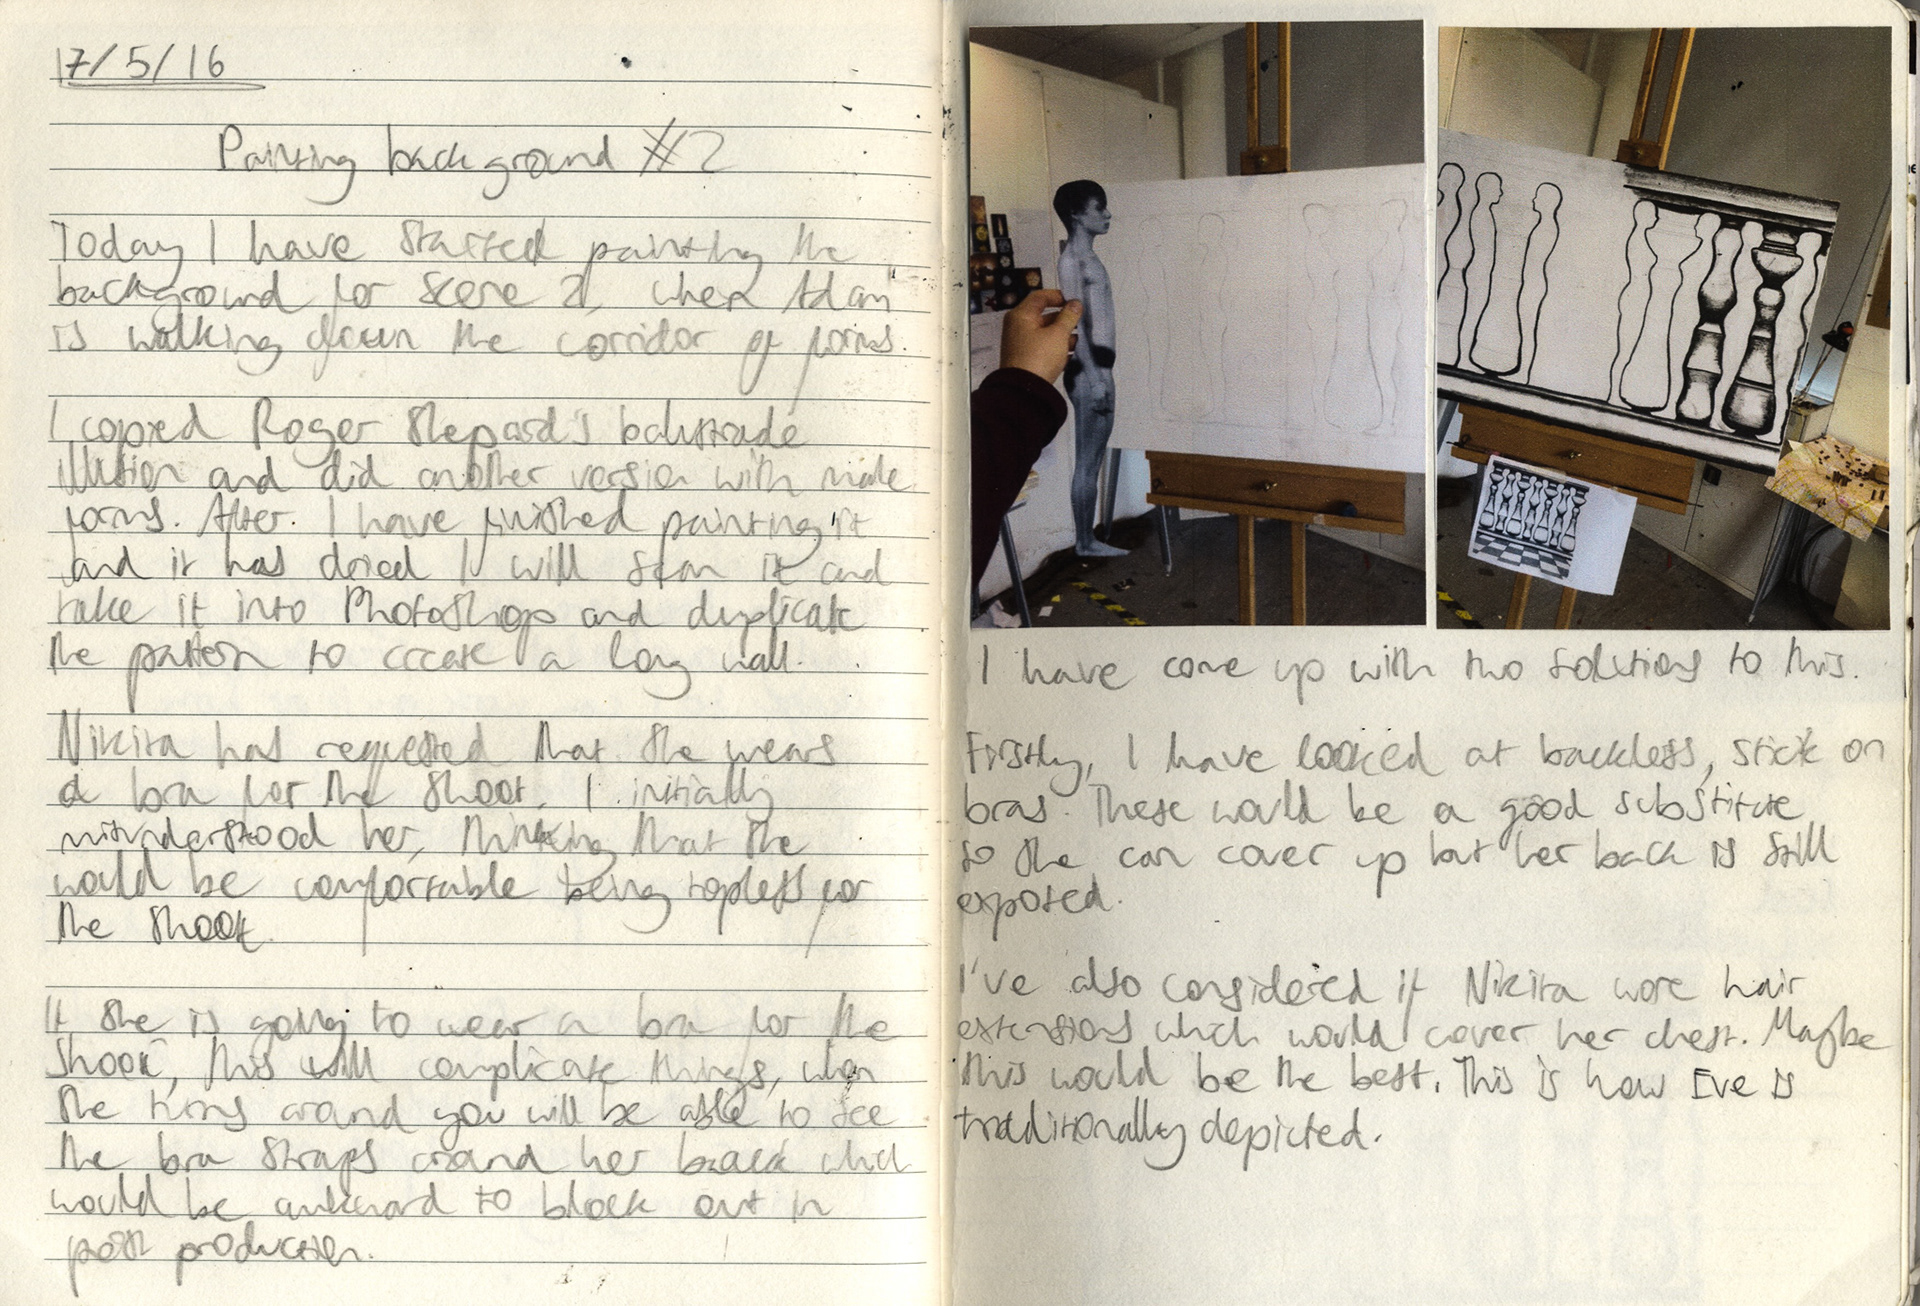 17/5/16
Painting background #2
Today I have started painting the
background for scene 2, when Adam
is walking down the corridor of forms.
I copied Roger Shepard's balustrade
illusion and did another version with male
forms. After. I have finished painting it
and it has dried I will scan it and
take it into Photoshop and duplicate
the pattern to create a long wall.
Nikita has requested that she wears
a bra for the shoot. I initially
misunderstood her, thinking that she
would be comfortable being topless for
the shoot.
If she is going to wear a bra for the
shoot, this will complicate things, when
she turns around you will be able to see
the bra straps around her back which
would be awkward to block out in
post production.
I have come up with two solutions to this.
Firstly, I have looked at backless, stick on
bras. These would be a good substitute
so she can cover up but her back is still
exposed.
I've also considered if Nikita wore hair
extensions which would cover her chest. Maybe
this would be the best. This is how Eve is
traditionally depicted.